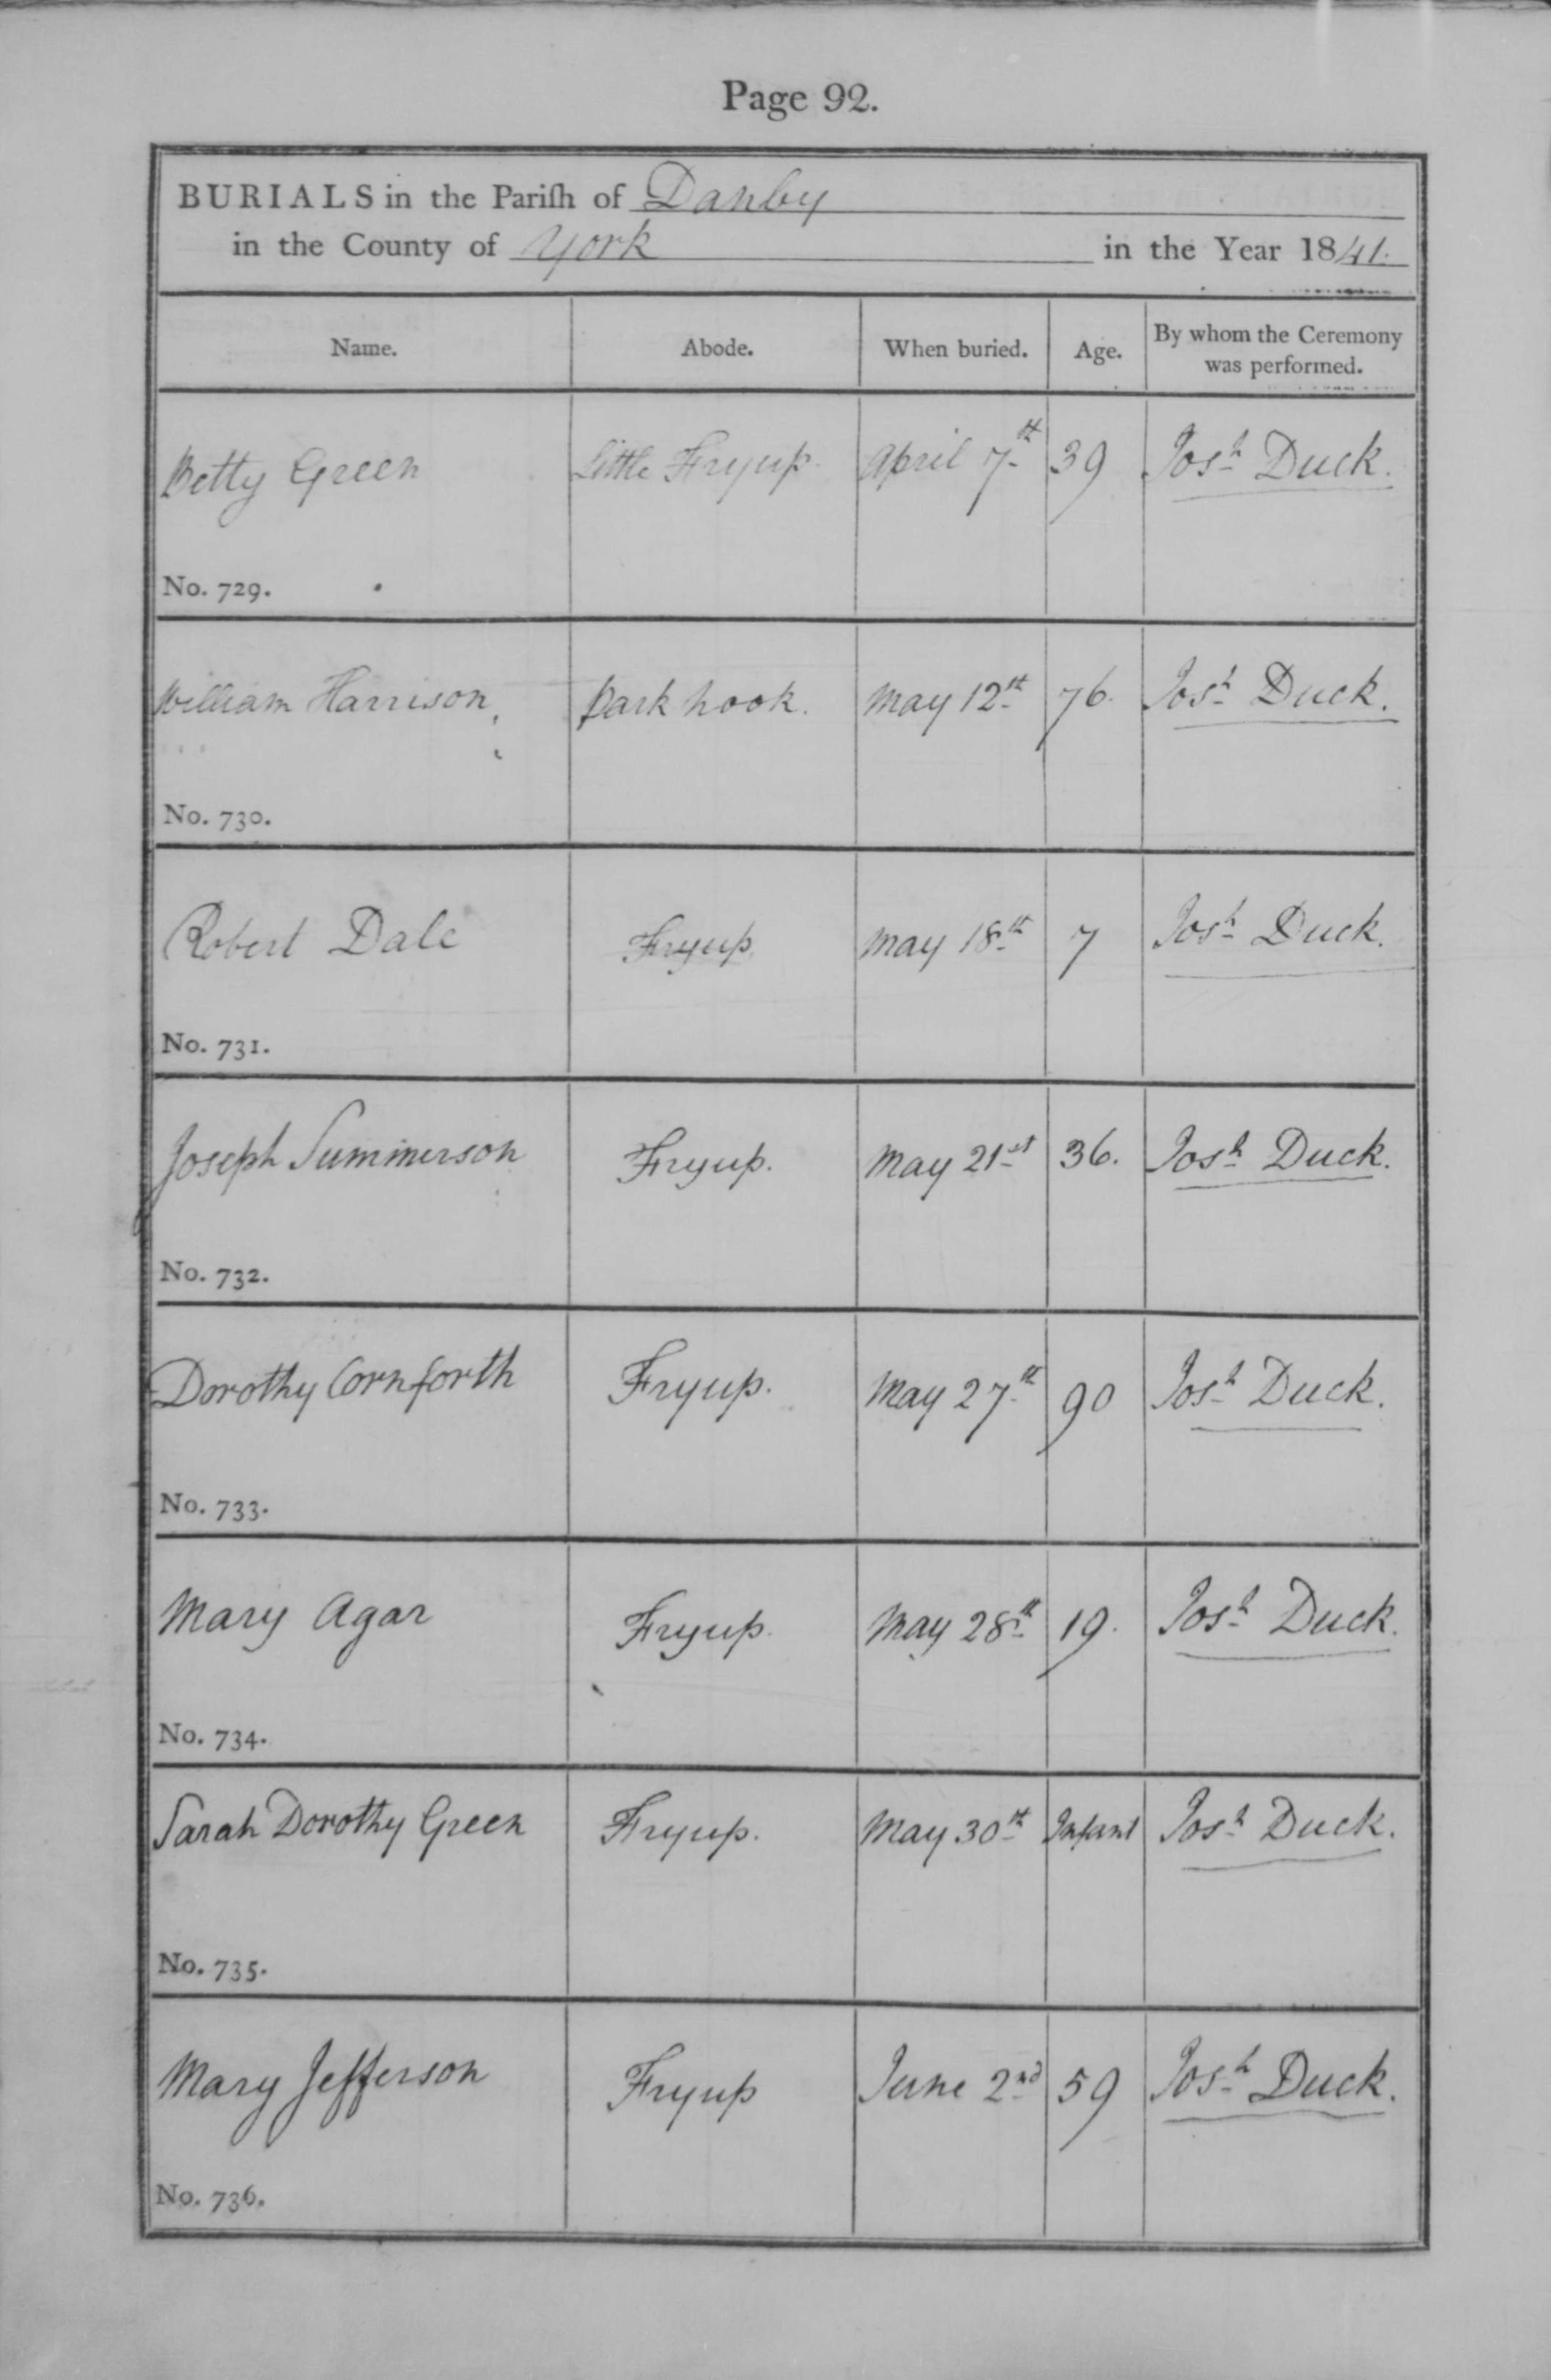 Page 92.
BURIALS in the Pariſh of Danby
in the County of York in the Year 1841.
Name. Abode. When buried. Age. By whom the Ceremony was performed.
Betty Green Little Fryup. April 7th 39 Josh Duck.
No. 729.
William Harrison, Park hook. May 12th 76. Josh Duck.
No. 730.
Robert Dale Fryup. May 18th 7 Josh Duck.
No. 731.
Joseph Summerson Fryup. May 21st 36. Josh Duck.
No. 732.
Dorothy Cornforth Fryup. May 27th 90 Josh Duck.
No. 733.
Mary Agar Fryup. May 28th 19. Josh Duck.
No. 734.
Sarah Dorothy Green Fryup. May 30th Infant Josh Duck.
No. 735.
Mary Jefferson Fryup June 2nd 59 Josh Duck.
No. 736.